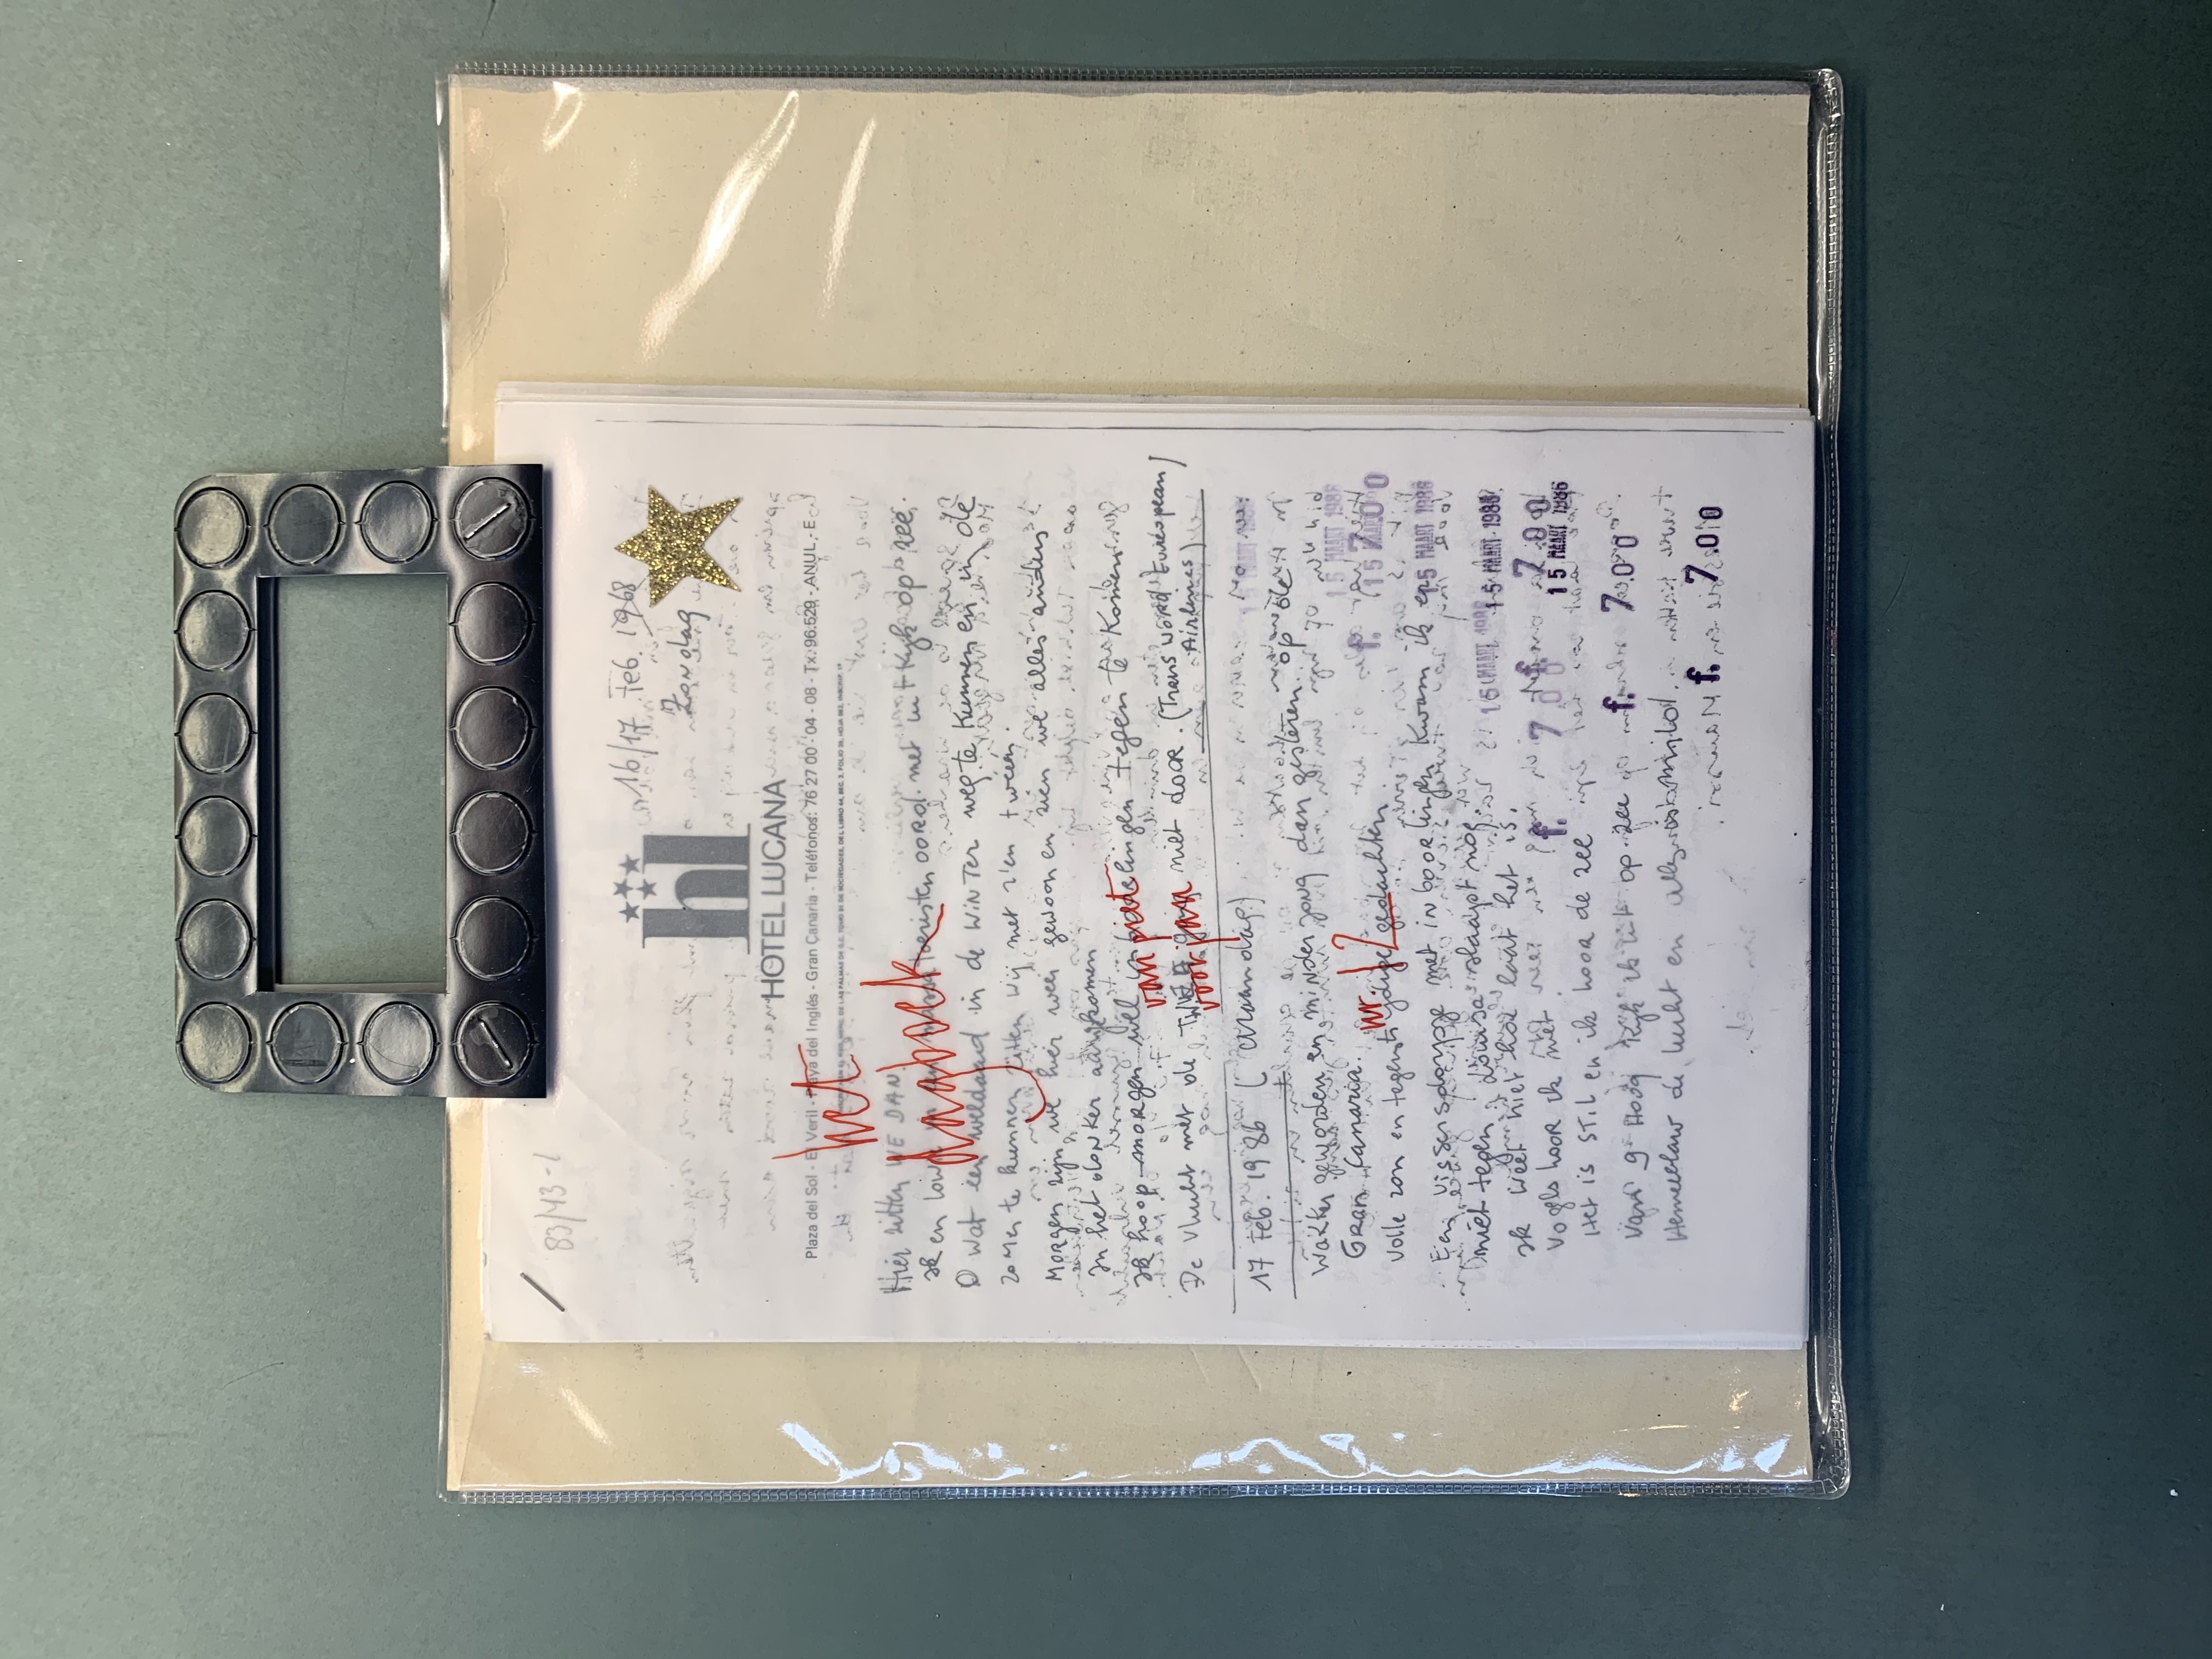 83/43-1
16/17 Feb. 1968
Zondag
hl
HOTEL LUCANA
Plaza del Sol - El Veril - Playa del Inglés - Gran Canaria - Teléfonos: 76 27 00 - 04 - 08 - Tx. 96.529 - ANUL - E
het
dagboek
Hier zitten WE DAN
ik en Louisa in een massa toeristen oord. met uitkijk op zee.
O wat een weldaad in de WINTER weg te kunnen en in de
zomer te kunnen zitten wij met z'en tweeën.
Morgen zijn we hier weer gewoon en zien we alles anders
In het donker aangekomen
ik hoop morgen wel inboorlingen tegen te komen.
van piet
voor jan
De vlucht met de TWEA ging niet door. (Trans world European
Airlines)
17 Feb. 1986 (Maandag)
Wakker geworden en minder jong dan gisteren op de
Gran Canaria.
nr. 12
volle zon en tegenstrijdige gedachten.
Een vissersdorpje met inboorlingen kwam ik er
niet tegen. Louisa slaapt nog.
ik weet niet hoe laat het is.
Vogels hoor ik niet.
Het is STIL en ik hoor de zee
Van 9 Hoog kijk ik uit op zee
Hemelblauw de lucht en alles is mild.
15 MAART 1986
15 MAART 1986
f. 7.00
15 MAART 1986
15 MAART 1986
15 MAART 1986
15 MAART 1986
f. 7.00
f. 7.00
15 MAART 1986
f. 7.00
f. 7.00